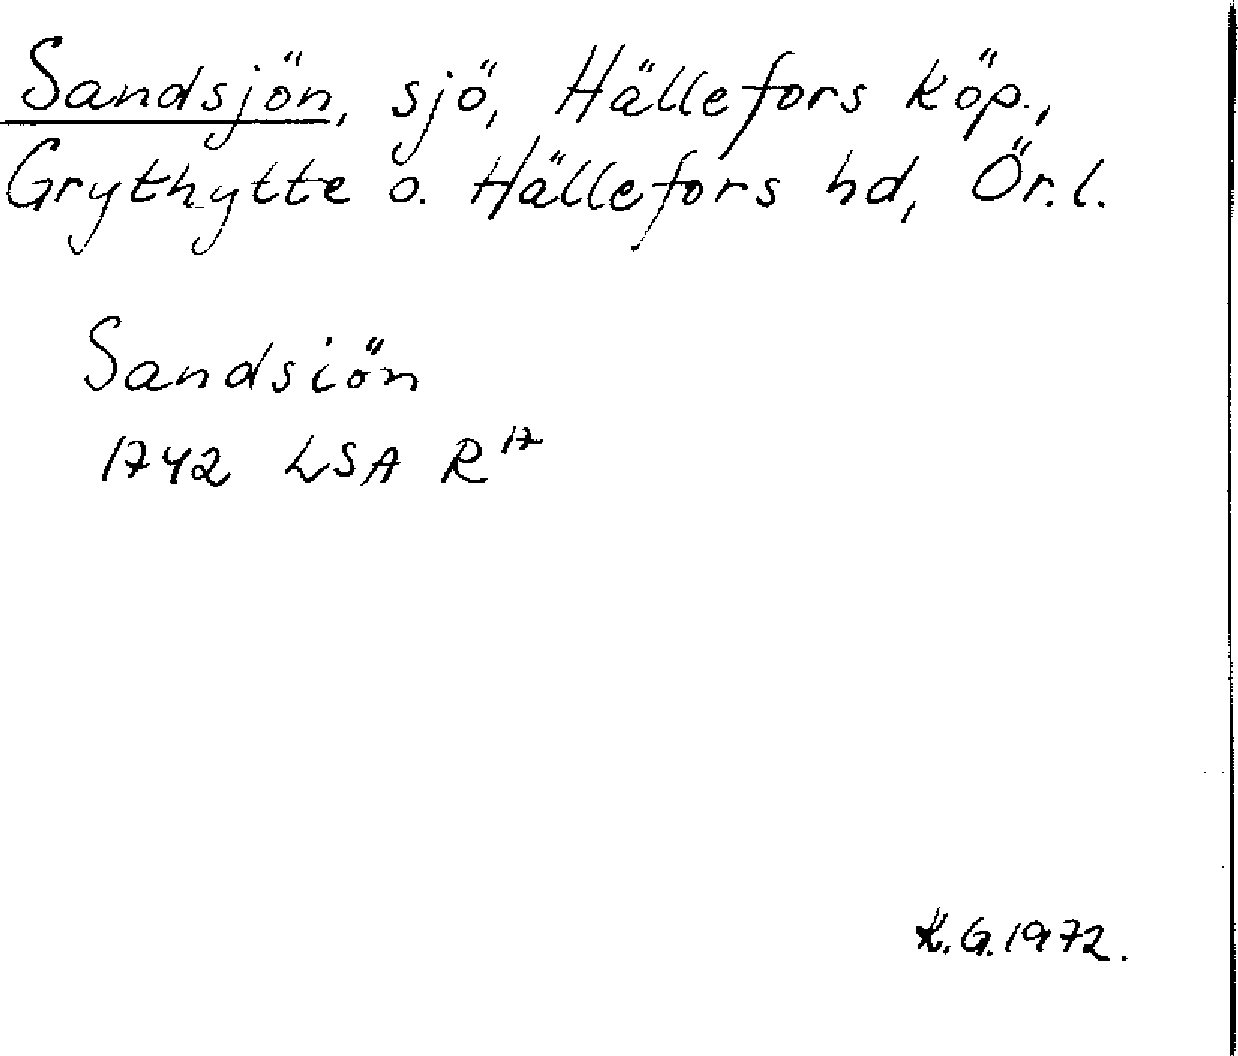 Sandsjön, sjö, Hällefors köp.,
Grythytte o. Hällefors hd, Ör.l.
Sandsiön
1742 LSA R¹⁷
K.G.1972.